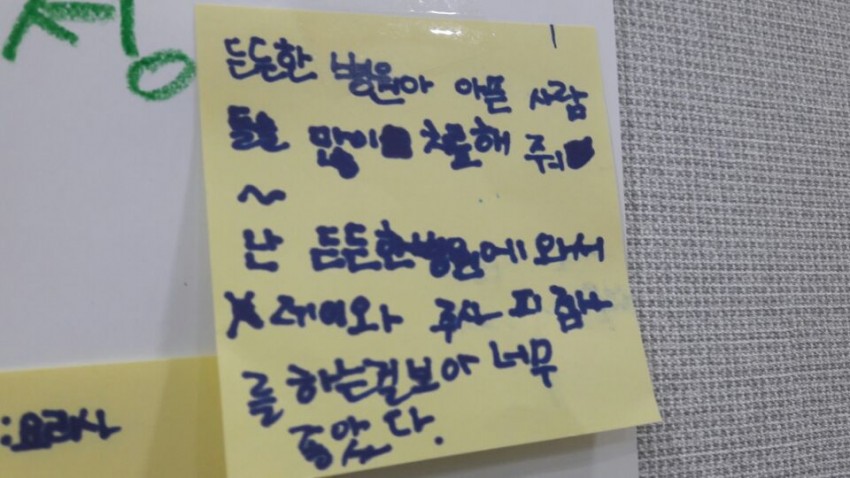 정
든든한 병원아 아픈 사람
들을 많이 치료해 줘
~
난 든든한병원에 와서
X레이와 주사 피 검사
를 하는걸보아 너무
좋았다.
:요리사